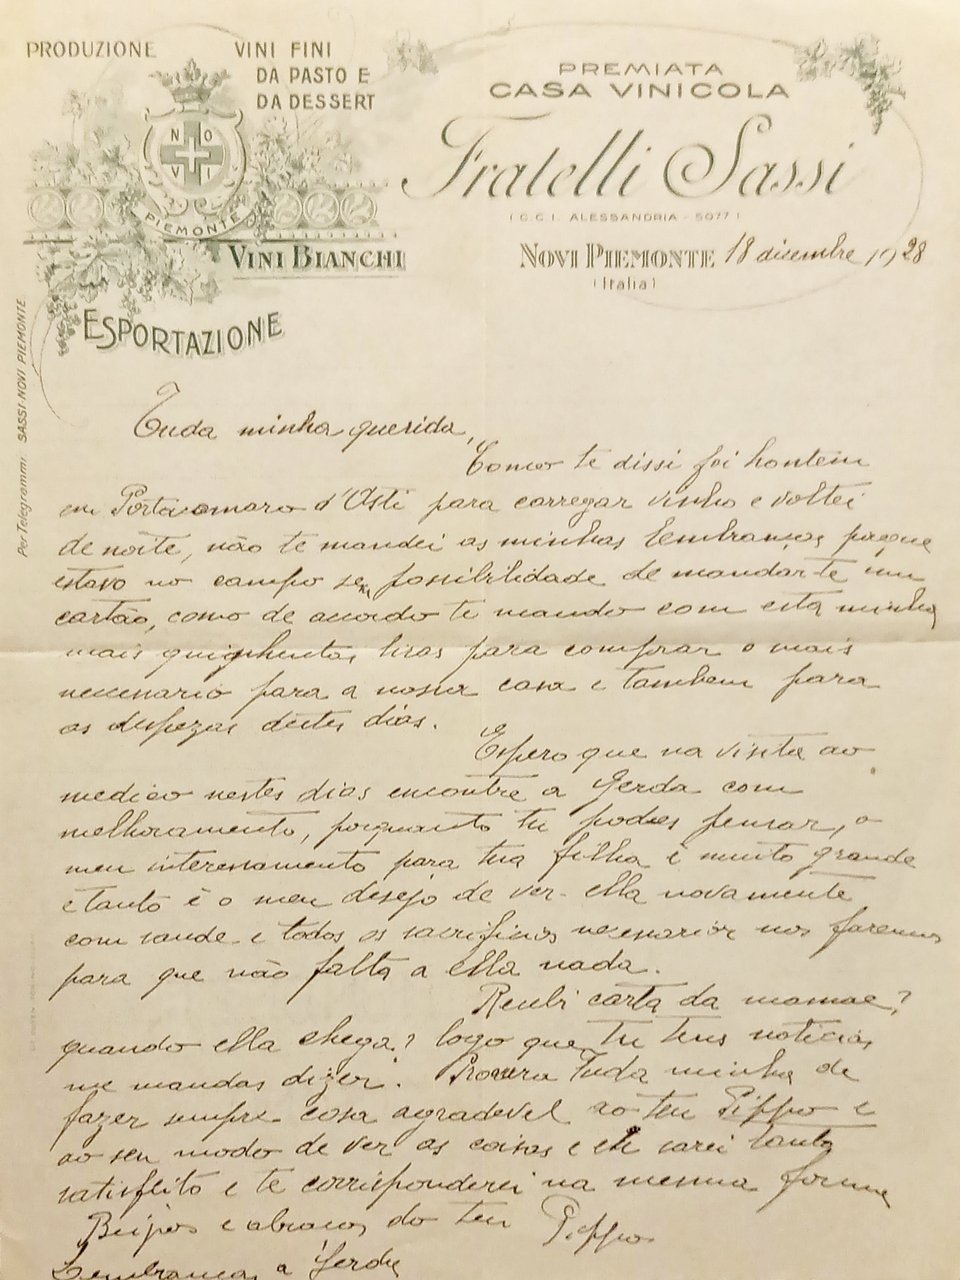 PRODUZIONE
VINI FINI
DA PASTO E
DA DESSERT
NOVI
PIEMONTE
VINI BIANCHI
ESPORTAZIONE
Per Telegrammi: SASSI-NOVI PIEMONTE
PREMIATA
CASA VINICOLA
Fratelli Sassi
(C.C.I. ALESSANDRIA - 5077)
NOVI PIEMONTE 18 dicembre 1928
(Italia)
Tuda minha querida,
Como te dissi foi hontem
em Portacomaro d'Asti para carregar vinho e voltei
de noite, não te mandei as minhas lembranças porque
estavo no campo sem possibilidade de mandar-te um
cartão, como de acordo te mando com esta minha
mais quinhentas liras para comprar o mais
necessario para a nossa casa e tambem para
as despezas destes dias.
Espero que na visita ao
medico nestes dias encontre a Gerda com
melhoramento, porquanto tu podes pensar, o
meu interessamento para tua filha é muito grande
e tanto é o meu desejo de ver ella novamente
com saude e todos os sacrificios necessarios nos faremos
para que não falta a ella nada.
Recebi carta da mamae?
quando ella chega? logo que tu tens noticias
me mandas dizer. Procura Tuda minha de
fazer sempre cosa agradevel ao teu Pippo e
ao seu modo de ver as coisas e eu sarei tanto
satisfeito e te corrisponderei na mesma forma
Beijos e abraços do teu Pippo
Lembranças a Gerda